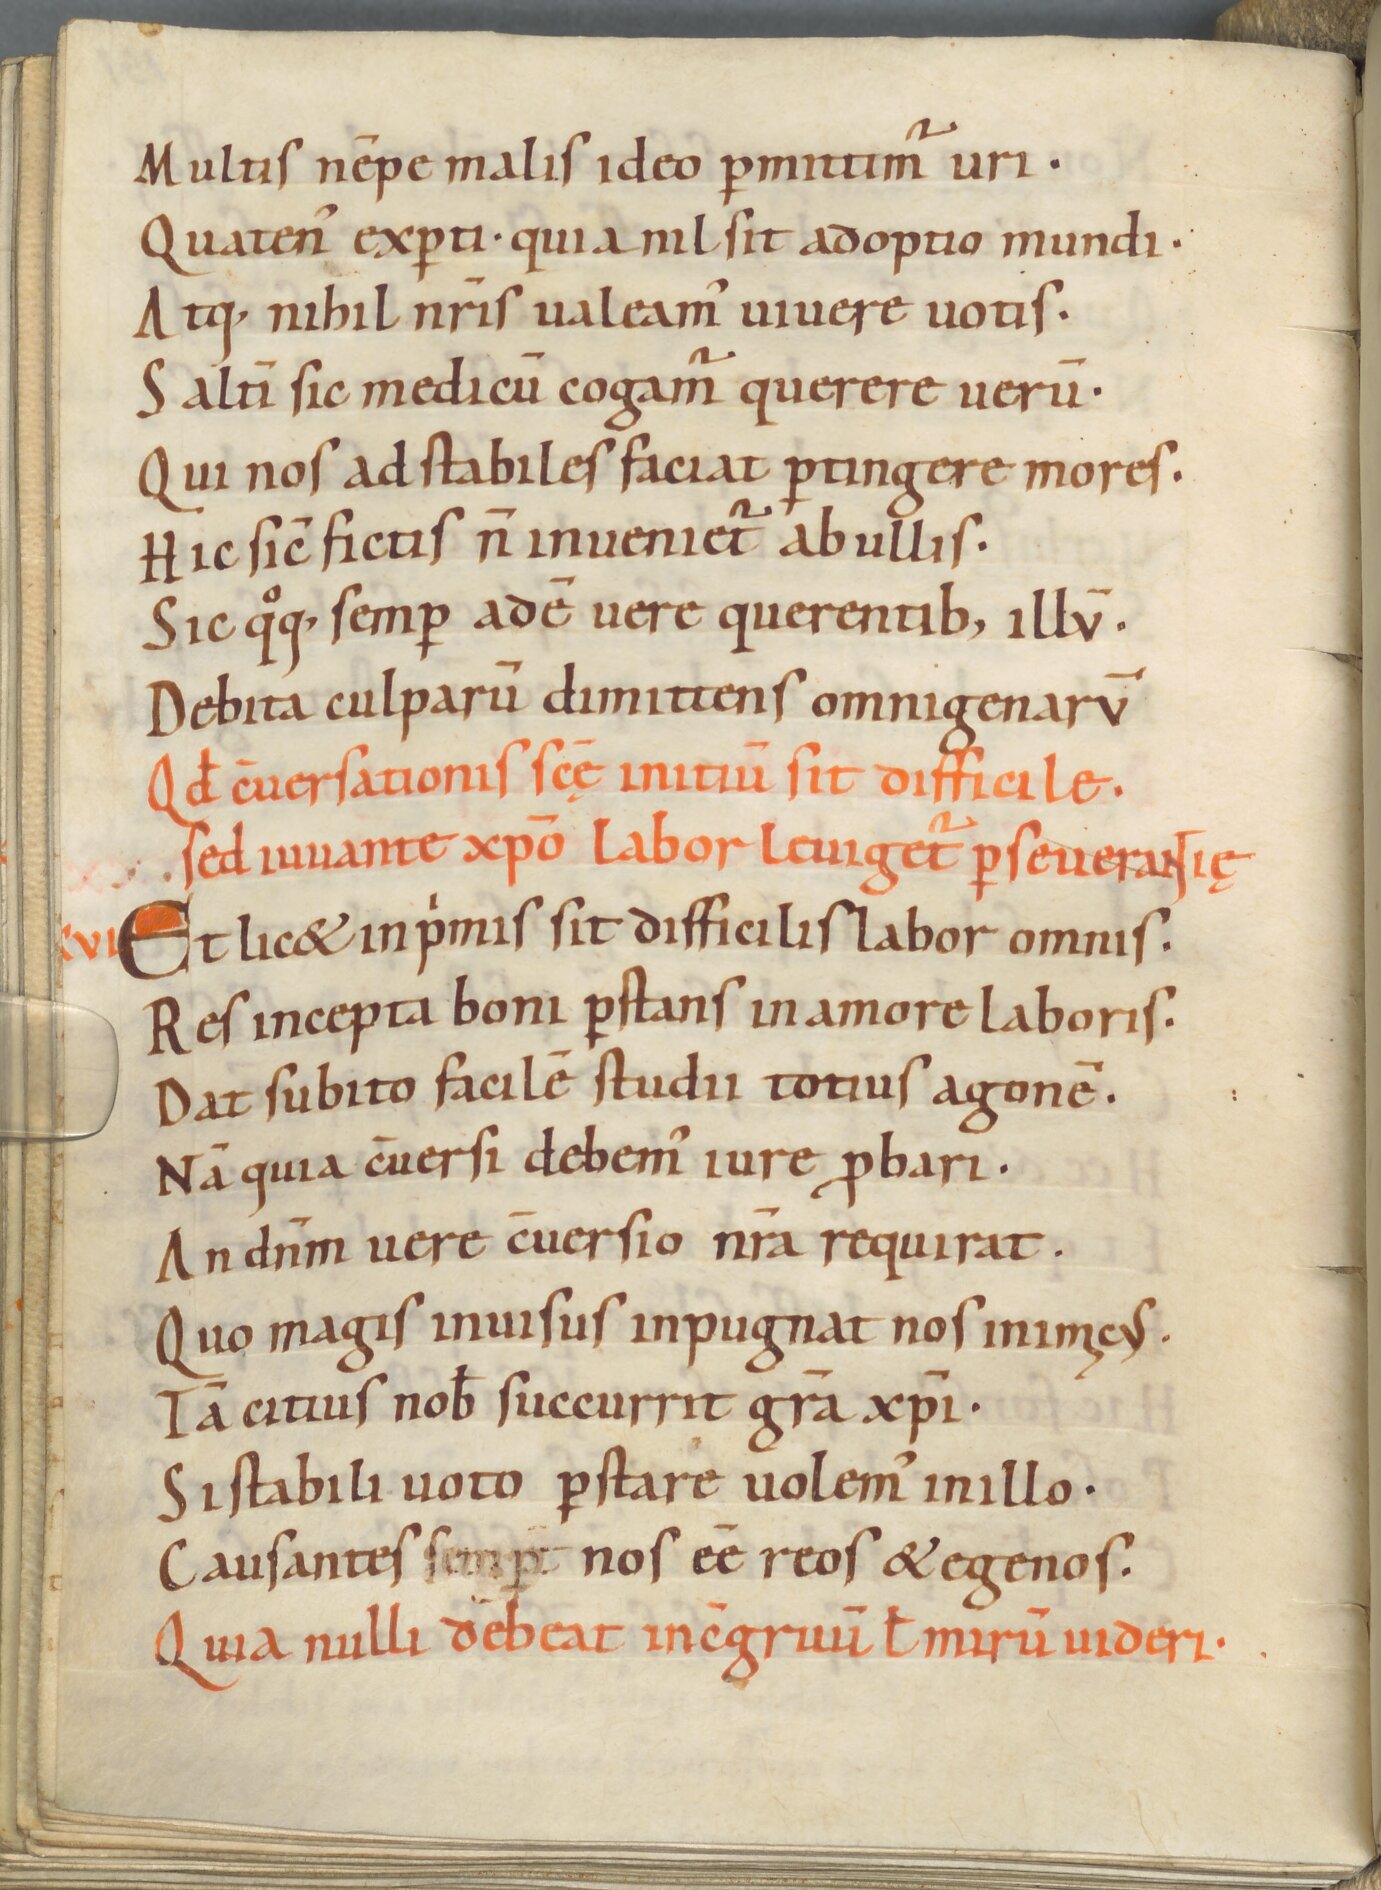 Multis nēpe malis ideo ꝑmittim᷑ uri ·
Quaten᾽ exꝑti · quia nil sit adoptio mundi ·
Atq, nihil nr̄is ualeam᾽ uiuere uotis ·
Saltī sic medicū cogam᷑ querere uerū ·
Qui nos ad stabiles faciat ꝑtingere mores ·
Hic sic̄ fictis n̄ inueniet᷑ ab ullis ·
Sic qͦq, semꝑ adē uere querentib, illv̄ ·
Debita culparū dimittens omnigenarv̄
Qd̄ c̄uersationis sc̄ę initiū sit difficile ·
sed iuuante xp̄o labor leuiget᷑ ꝑseuerantię
XVI Et lic& inpͥmis sit difficilis labor omnis ·
Res incepta boni ꝑstans in amore laboris ·
Dat subito facilē studii totius agonē ·
Nā quia c̄uersi debem᾽ iure ꝓbari ·
An dn̄m uere c̄uersio nr̄a requirat ·
Quo magis inuisus inpugnat nos inimicus ·
Tā citius nob̄ succurrit gr̄a xp̄i ·
Si stabili uoto ꝑstare uolem᾽ in illo ·
Causantes nos eē reos & egenos ·
Quia nulli debeat inc̄gruū ł mirū uideri ·